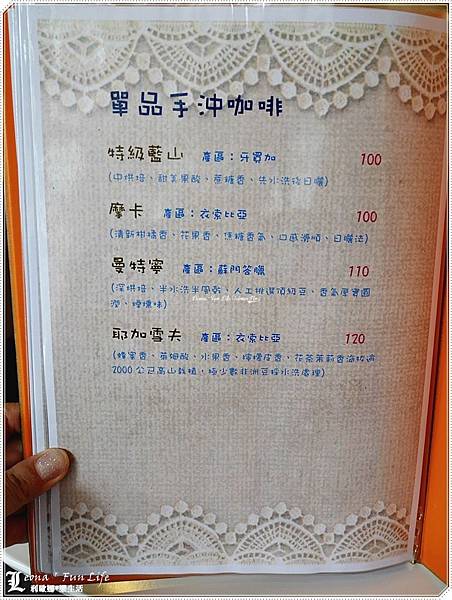 單品手沖咖啡
特級藍山 產區：牙買加 100
(中烘培、甜美果酸、蔗糖香、先水洗後日曬)
摩卡 產區：衣索比亞 100
(清新柑橘香、花果香、焦糖香氣、口感滑順、日曬法)
曼特寧 產區：蘇門答臘 110
(深烘培、半水洗半風乾、人工挑選頂級豆、香氣厚實圓
潤、煙燻味)
耶加雪夫 產區：衣索比亞 120
(蜂蜜香、莓姆酸、水果香、檸檬皮香、花茶茉莉香海拔逾
2000 公尺高山栽植，極少數非洲豆採水洗處理)
Leona * Fun Life